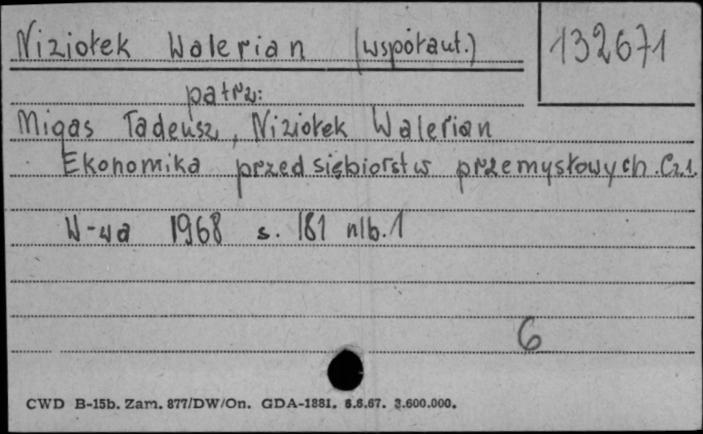 Niziołek Walerian (współaut.) 132671
patrz:
Migas Tadeusz, Niziołek Walerian
Ekonomika przedsiębiorstw przemysłowych. Cz.1.
W-wa 1968 s. 161 nlb. 1
6
CWD B-15b. Zam. 877/DW/On. GDA-1881. 6.6.67. 3.600.000.